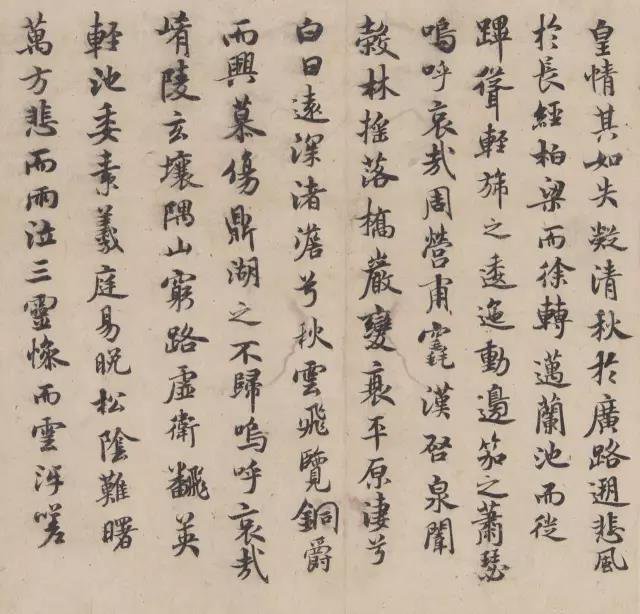 皇情其如失凝清秋於廣路遡悲風
於長經柏梁而徐轉邁蘭池而徙
蹕聳輕旂之逶迤動邊笳之蕭瑟
嗚呼哀哉周營甫竁漢啓泉
穀林搖落橋巖變衰平原淒兮
白日遠深渚澹兮秋雲飛覽銅爵
而興慕傷鼎湖之不歸嗚呼哀哉
崤陵玄壤隅山窮路虛衛飜英
輕池委素羲庭易晚松陰難曙
萬方悲而雨泣三靈慘而雲冱嗟